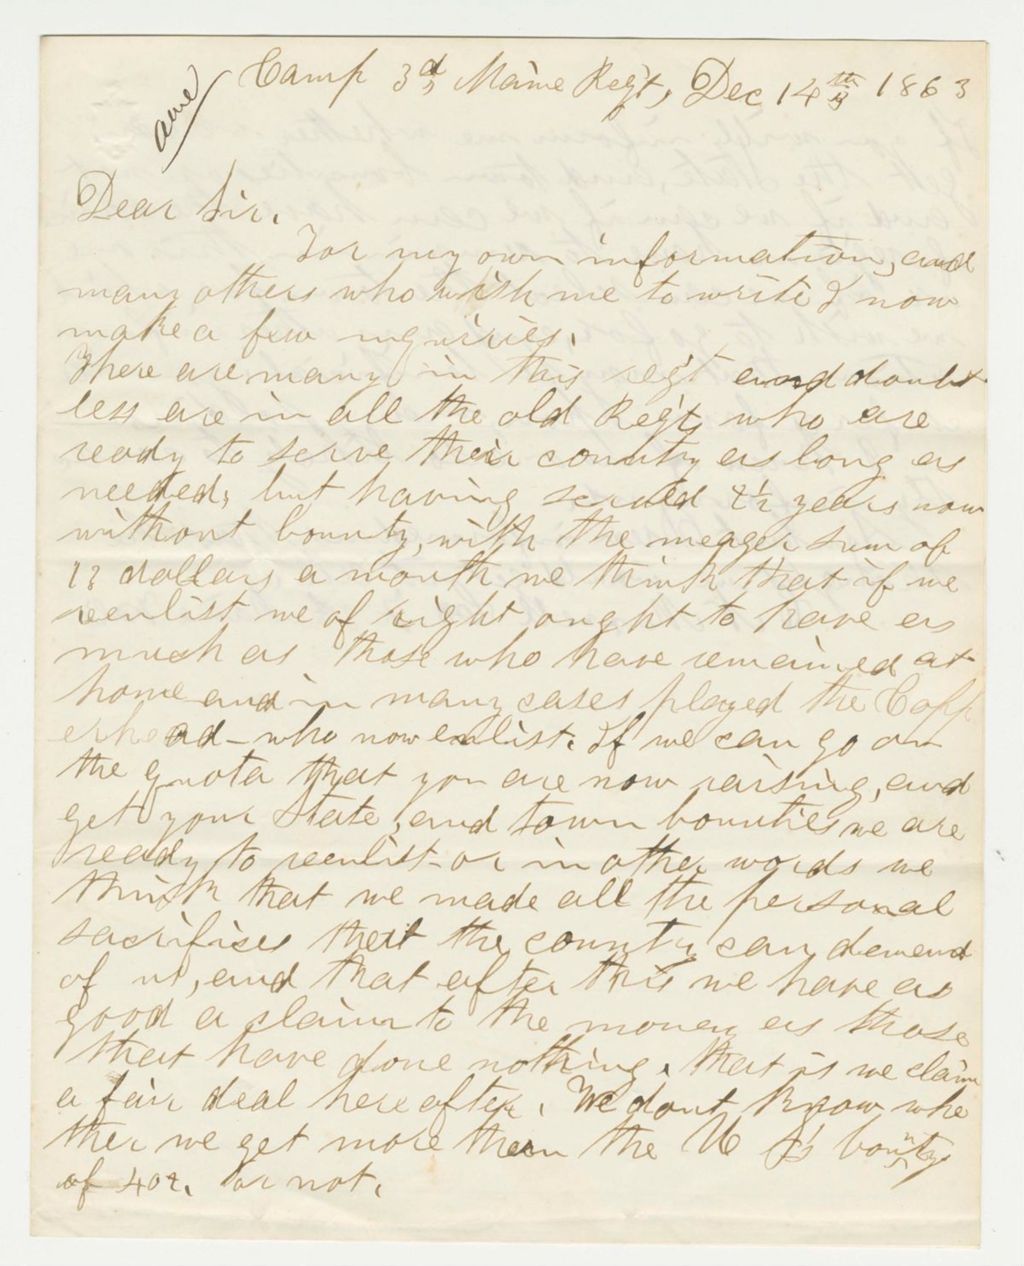 Camp 3d Maine Reg't, Dec 14th 1863
Dear Sir.
For my own information, and
many others who wish me to write I now
make a few inquiries.
There are many in this reg't and doubt
less are in all the old Reg't, who are
ready to serve their country as long as
needed, but having served 2½ years now
without bounty, with the meager sum of
13 dollars a month we think that if we
reenlist we of right ought to have as
much as those who have remained at
home and in many cases played the Copp
erhead - who now enlist. If we can go on
the quota that you are now raising, and
get your State, and town bounties we are
ready to reenlist - or in other words we
think that we made all the personal
sacrifises that the country can demand
of us, and that after this we have as
good a claim to the money as those
that have done nothing. that is we claim
a fair deal hereafter. We dont know whe
ther we get more than the U S's bounty
of 402. or not.